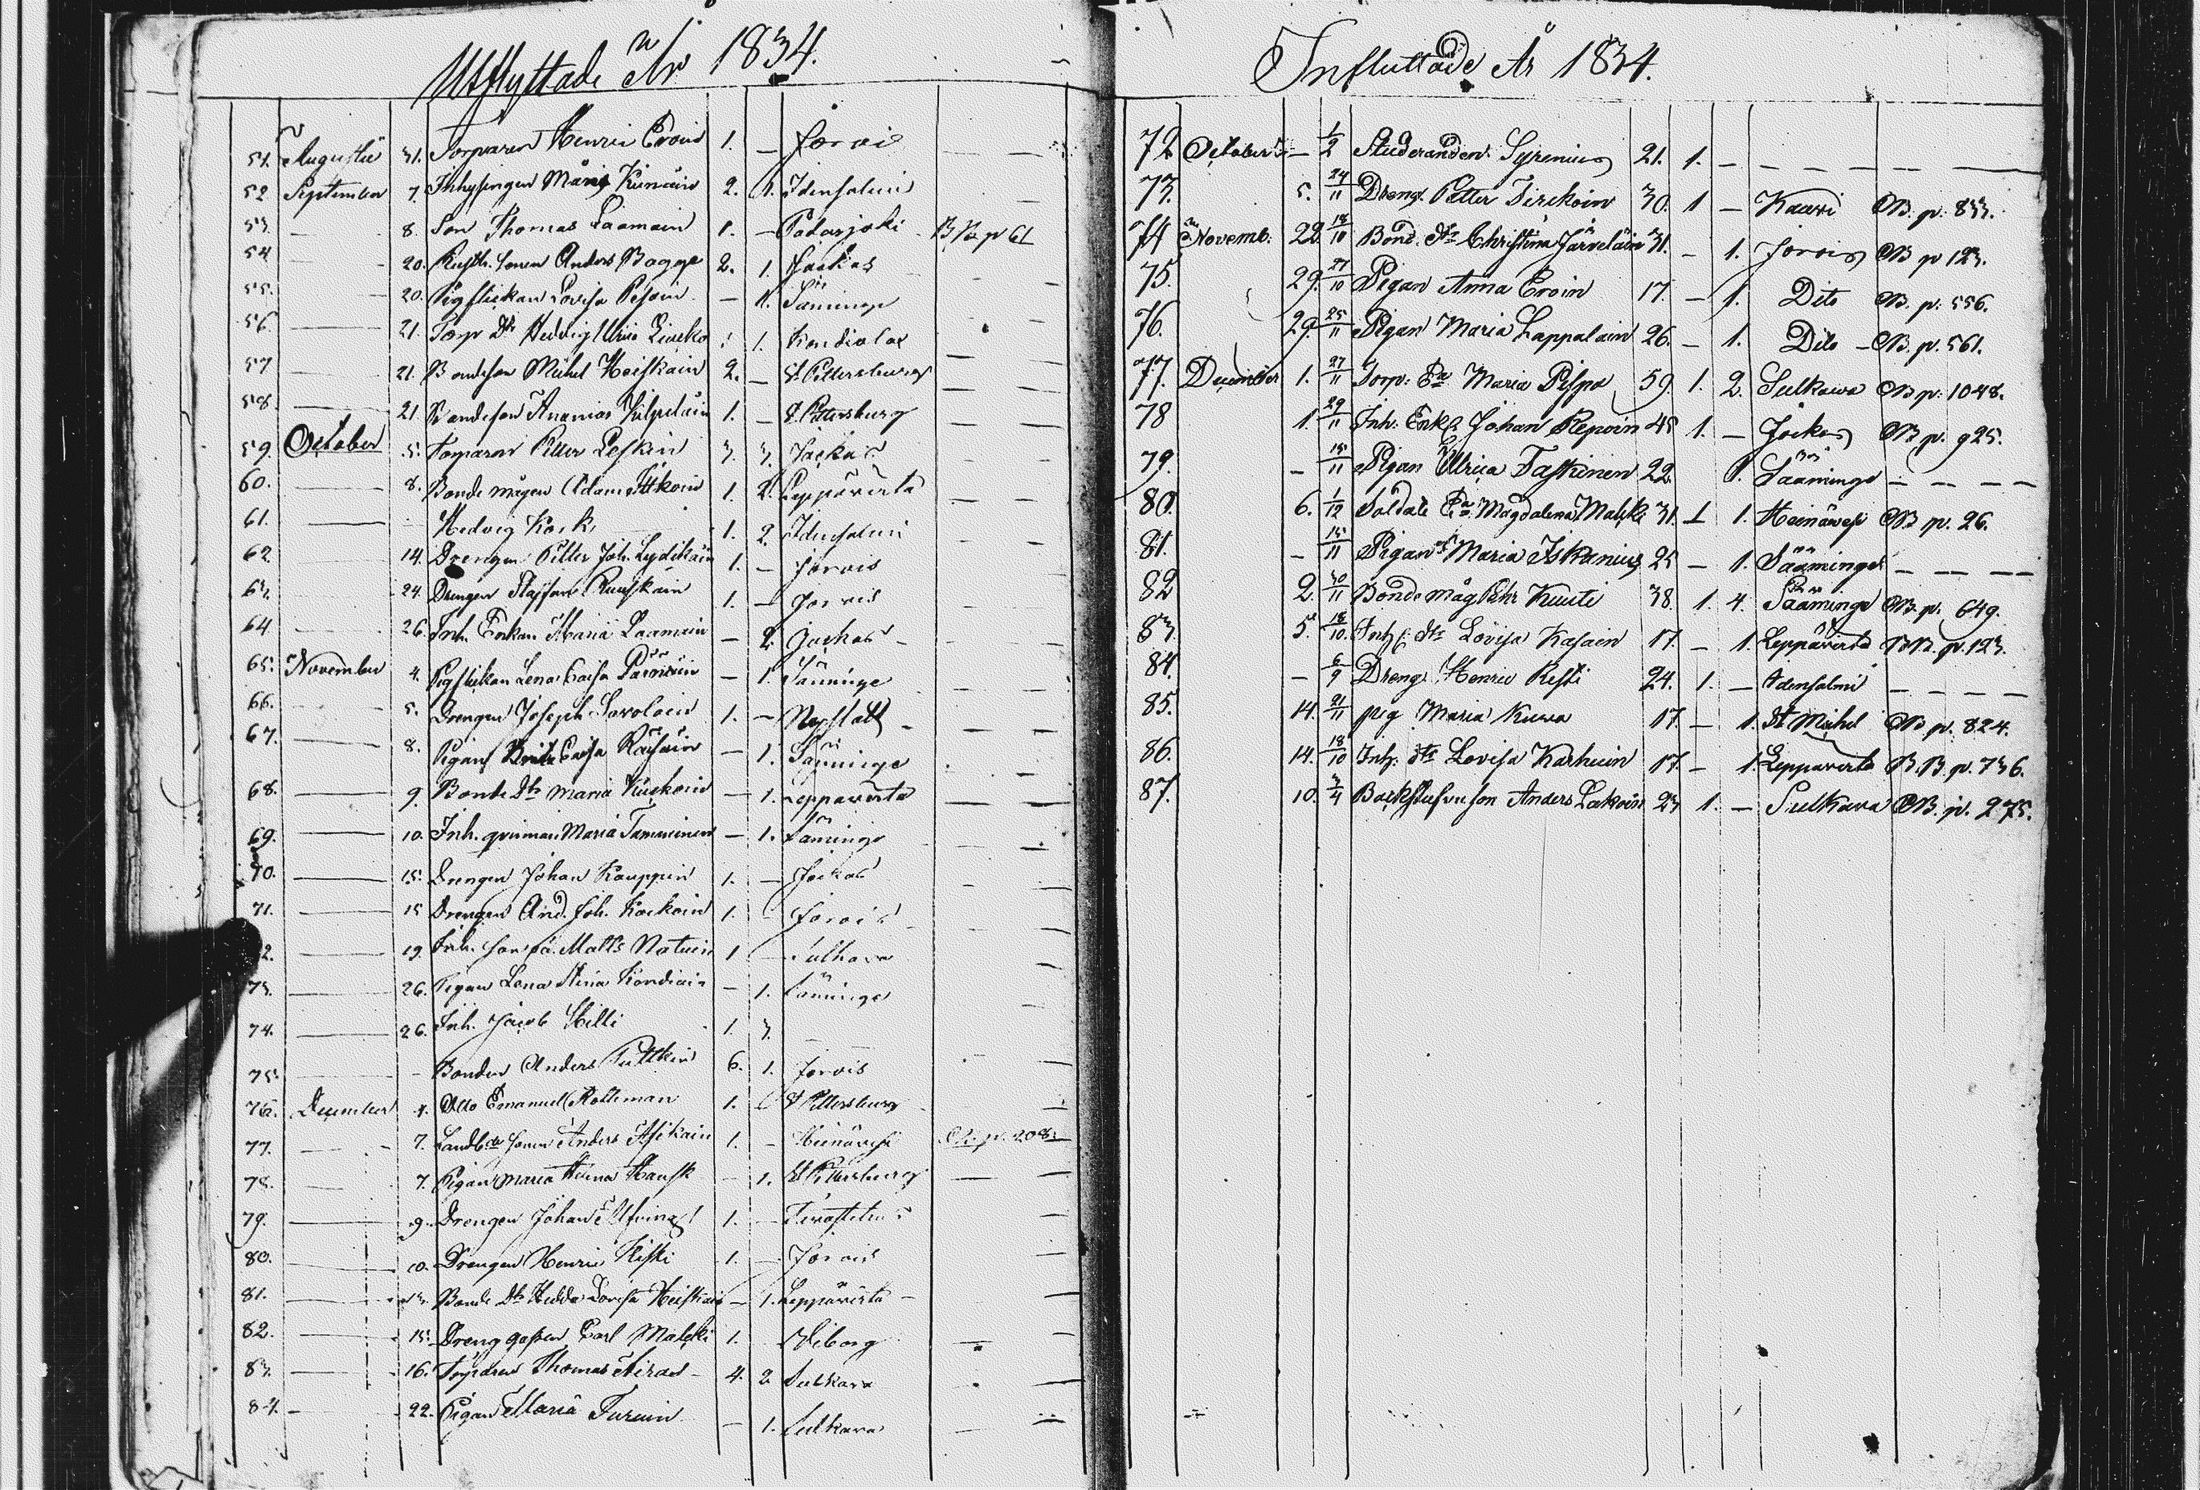 Utflyttade År 1834.
51. Augusti 31. Torparen Henric Eroin 1. — Jorois — —
52 September 7. Inhysingen Måns Kinnuin 2. 1. Idensalmi — —
53. — 8. Son Thomas Laamain 1. — Padasjoki B.B. p 61
54 — 20. Rusth. sonen Anders Bagge 2. 1. Jockas — —
55. — 20. Pigflickan Lovisa Pesoin — 1. Sääminge — —
56. — 21. Torp Dtr Hedvig Ulrica 1. Kondialax — —
57 — 21. Bondeson Michel Heiskain 2. — St Pettersburg — —
58. — 21. Bondeson Ananias Julpulain 1. — St Petersburg — —
59. October 5. Torparen Petter Leskin 3. 3. Jockas — —
60. — 8. Bonde mågen Adam Itkoin 1. 2. Leppävirta — —
61. — Hedvig Kock 1. 2. Idensalmi — —
62 — 14. Drengen Petter Joh. Lydikäin 1. — Jorois — —
63. — 24. Drengen Staffan Ruuskain 1. — Jorois — —
64 — 26. Inh. Enkan Maria Laamain — 2 Jockas — —
65. November 4. Pigflickan Lena Caisa Parnäin — 1. Sääminge — —
66. — 5. Drengen Joseph Savolain 1. — Nyslott — —
67. — 8. Pigan Brita Caisa Räisäin — 1. Sääminge — —
68. — 9. Bonde Dtr Maria Kuckoin — 1. Leppävirta — —
69. — 10. Inh. qvinnan Maria Tamminen — 1. Sääminge — —
70. — 15. Drengen Johan Kauppin 1. — Jockas — —
71. — 15 Drengen And. Joh. Kockoin 1. — Jorois — —
72. — 19. Inh. Matts Natuin 1 — Sulkava — —
73. — 26. Pigan Lena Stina Kondiain — 1. Sääminge — —
74. — 26. Inh. Jacob Hilli 1. 3. — —
75. — Bonden Anders Puttkin 6. 1. Jorois — —
76. December 4. Otto Emanuel Rotkman 1. St Pettersburg — —
77. — 7. Landb. sonen Anders Asikain 1. — Heinävesi B. p. 208
78. — 7. Pigan Maria Stina Hausk — 1. St Pettersburg — —
79. — 9. Drengen Johan 1. — Tavastehus — —
80. — 10. Drengen Henric Risti 1. — Jorois — —
81. — 13. Bonde Dtr Hedda Lovisa Heiskain — 1. Leppävirta — —
82. — 15. Dreng gossen Carl Malski 1. Viborg — —
83. — 16. Torparen Thomas Hirvon 4. 2 Sulkava — —
84. — 22. Pigan Maria Turuin — 1. Sulkava — —
Influttade År 1834.
72 October — 1/2 Studeranden Syrenius 21. 1. — — — — —
73. 5. 24/11 Dreng. Petter Tirckoin 30. 1 — Kauvi B. p. 833.
74 Novemb: 22 18/10 Bond. dtr Christina Järveläin 31. — 1. Jorois B p 123.
75. 29. 27/10 Pigan Anna Eroin 17. — 1. Dito B. p. 556.
76. 29. 25/11 Pigan Maria Lappalain 26. — 1. Dito B. p. 561.
77. December 1. 27/11 Torp: Ea Maria Pispa 59. 1. 2. Sulkawa B p: 1048.
78 1. 29/11 Inh: Enkl. Johan Repoin 45 1. — Jockas B p. 925.
79. — 15/11 Pigan Ulrica Taskinen 22. 1. Sääminge — — — —
80. 6. 1/12 Soldate Ea Magdalena Malski 31. 1 1. Heinäwesi B p. 26.
81. — 15/11 Pigan Maria Iskanius 25 — 1. Sääminge — — —
82 2. 30/11 Bonde måg Pehr Kuuti 38. 1. 4. Sääminge B. p. 649.
83. 5. 18/10. Inh: dtr Lovisa Kasain 17. — 1. Leppävirta B.B. p. 123.
84. — 6/9 Dreng. Henric Risti 24. 1. — Idensalmi — — — —
85. 14. 21/11 pig Maria Kuwa 17. — 1. St Michel B p. 824.
86. 14. 18/10 Inh: dtr Lovisa Karhuin 17. — 1. Leppävirta B.B. p. 736.
87. 10. 3/4 Anders Lakoin 23 1. — Sulkava B. p. 275.